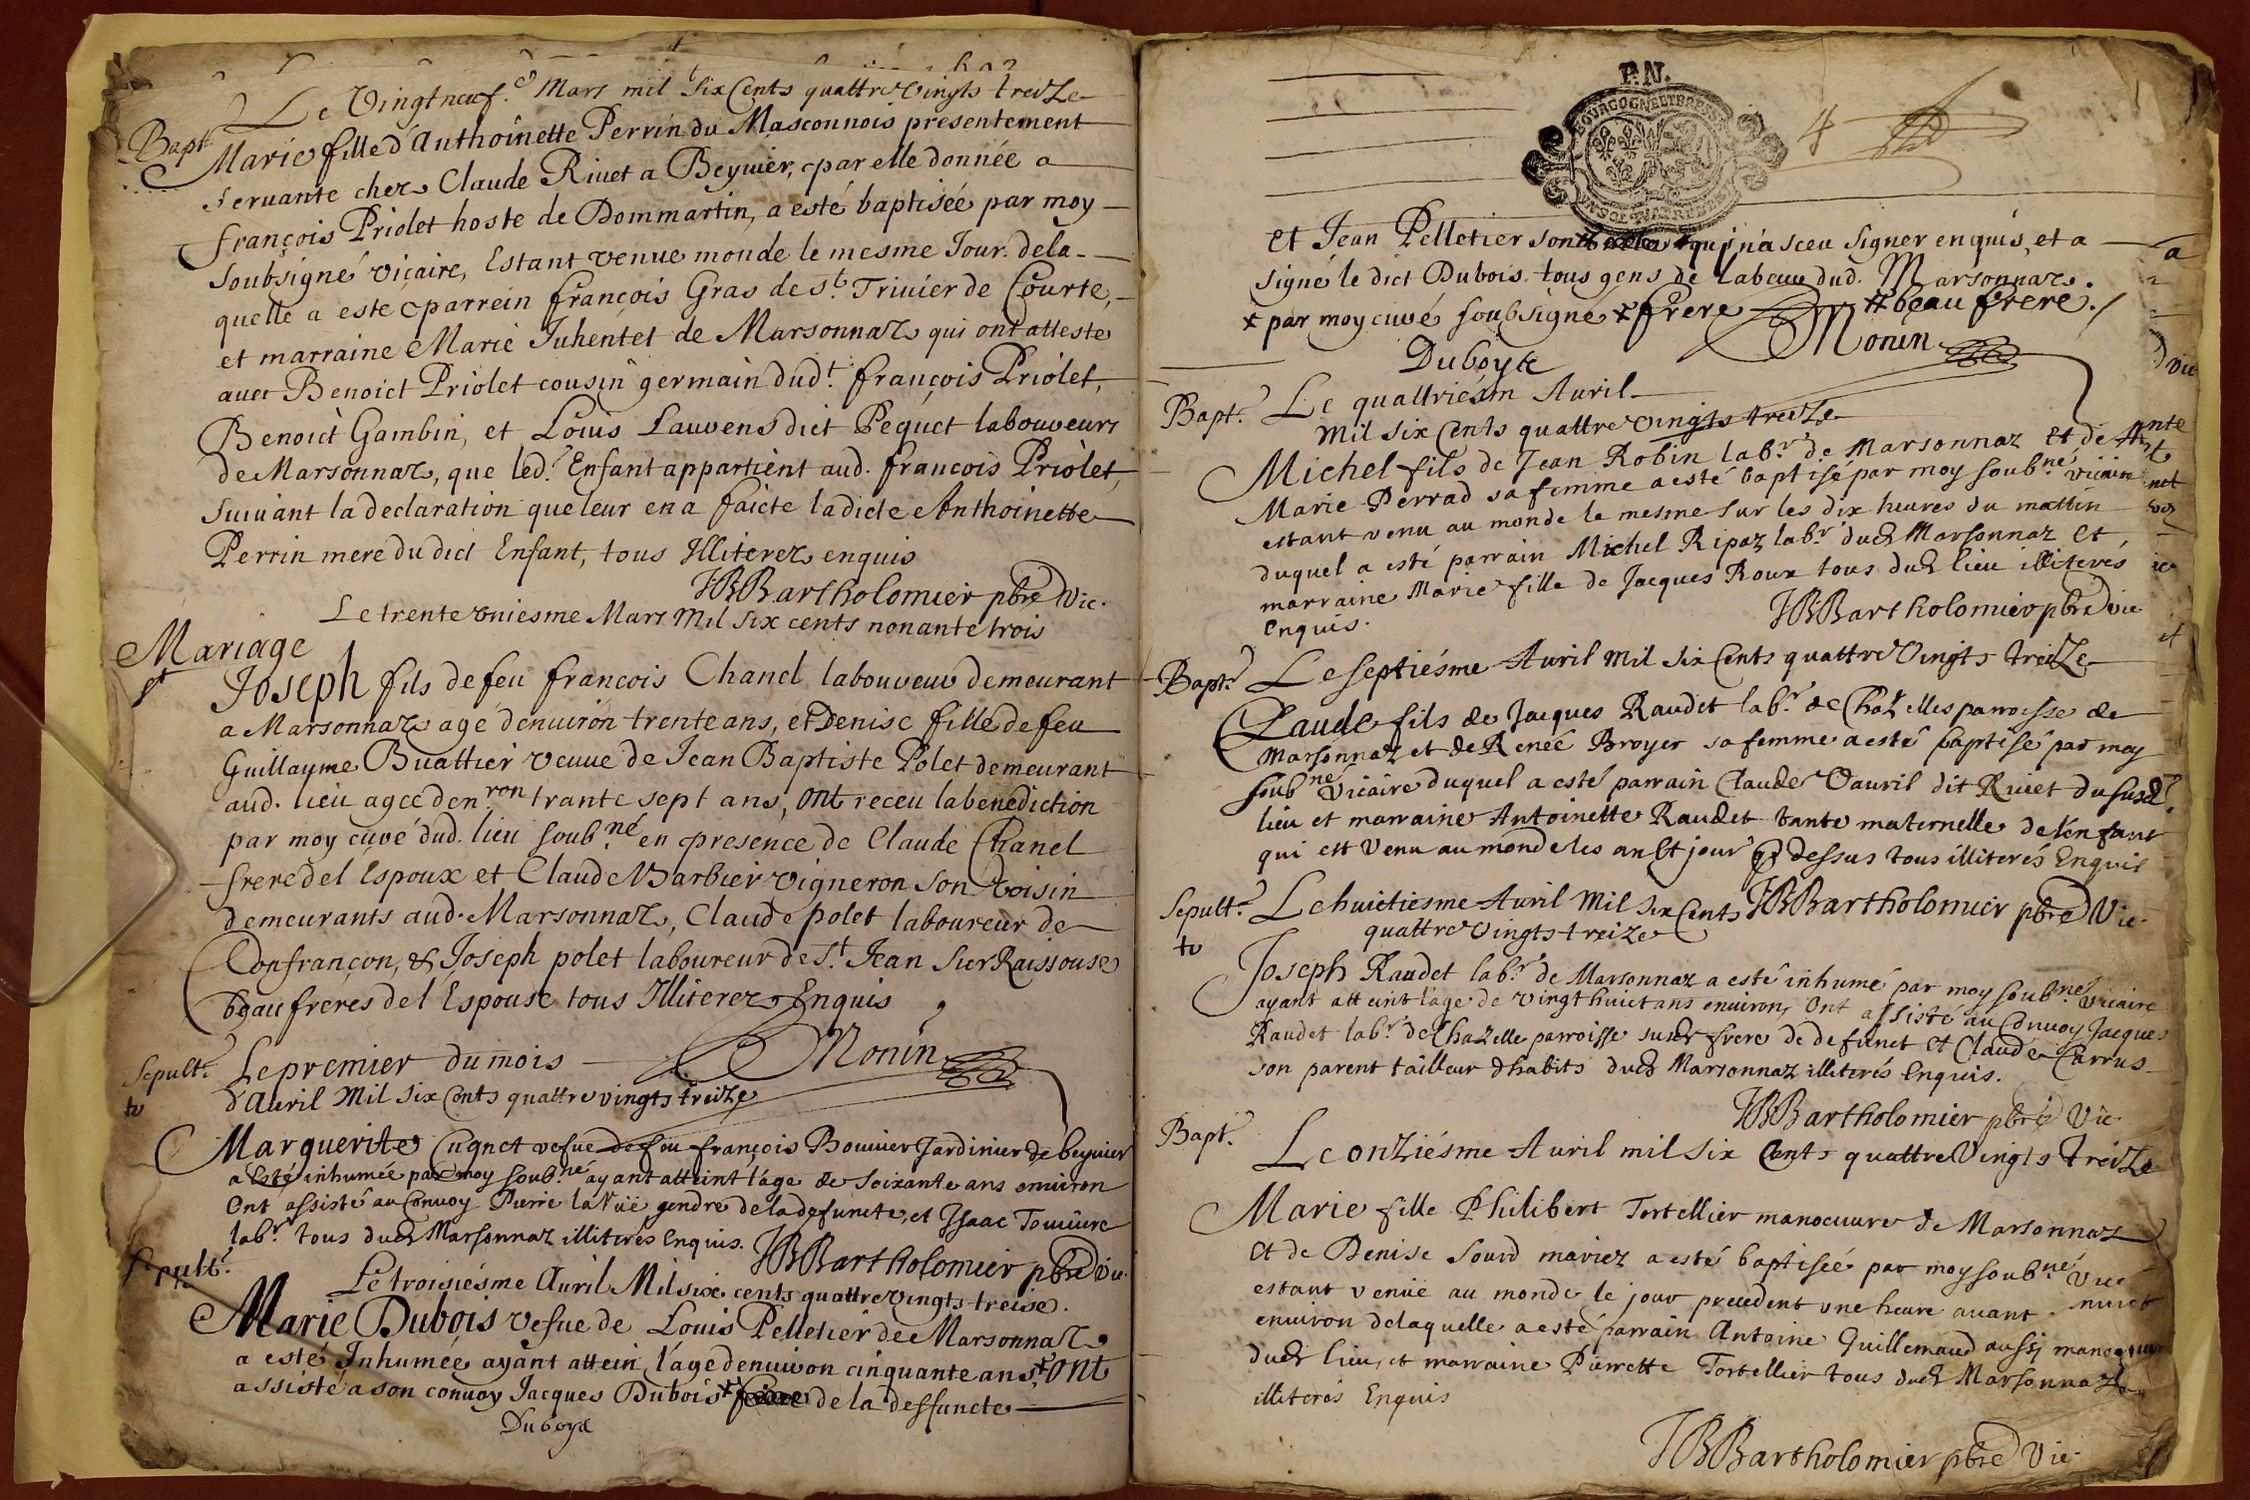 Le vingtneuf.e Mars mil six cents quattre vingts treize
Bapt.
Marie fille d'Anthoinette Perrin du Masconnois presentement
servante chez Claude Rivet a Beyvier, par elle donnée a
françois Priolet hoste de Dommartin, a esté baptisée par moy
soubsigné vicaire, Estant venue monde le mesme Jour. de la-
quelle a este parrein françois Gras de st. Trivier de Courte,
et marraine Marie Juhentet de Marsonnaz qui ont atteste
avec Benoict Priolet cousin germain dudt. françois Priolet,
Benoict Gambin, et Louis Lauvens dict Pequet labouveurs
de Marsonnaz, que led. Enfant appartient aud. francois Priolet,
suivant la declaration que leur en a faicte ladicte Anthoinette
Perrin mere du dict Enfant, tous Illiterez enquis
JBBartholomier pbre Vic.
Le trente vniesme Mars Mil six cents nonante trois
Mariage
st
Joseph fils de feu francois Chanel labouveuv demeurant
a Marsonnaz age d'enuiron trente ans, et Denise fille de feu
Guillayme Buattier veuve de Jean Baptiste Polet demeurant
aud. lieu agee d'en.ron trante sept ans, ont receu la benediction
par moy cuvé dud. lieu soub.né en presence de Claude Chanel
frere del Espoux et Claude Varbier vigneron son voisin
demeurants aud. Marsonnaz, Claude polet laboureur de
Confrançon, & Joseph polet laboureur de St. Jean sur Raissouse
beau freres del Espouse tous Illiterez Enquis
Monin
Sepult.
Le premier du mois
d'Auril Mil six Cents quattre vingts treize
Marguerite Cugnet vefue de feu françois Bouuier Jardinier de beyuier
a Esté inhumée par moy soub.né ayant atteint l'age de soixante ans enuiron
Ont assisté au Conuoy Pierre la Vüe gendre de la defuncte, et Isaac
lab.r tous dud Marsonnaz illiterés Enquis.
JBBartholomier pbre Vic.
Sepult.
Le troisiesme Auril Mil six cents quattre vingts treise.
Marie Dubois vefue de Louis Pelletier de Marsonnaz
a esté Inhumée ayant attein l'age d'enuiron cinquante ans, ont
assisté a son convoy Jacques Dubois frere de la deffuncte
Duboys
P.N.
BOURGOGNE ET BRESSE
4
et Jean Pelletier son qui n'a sceu signer enquis, et a
signé le dict Dubois. tous gens de labeur dud. Marsonnaz.
x par moy cuvé soubsigné x frere # beau frere.
Monin
Duboys
Bapt.
Le quattriesm Auril
Mil six Cents quattre vingts treize
Michel fils de Jean Robin lab.r de Marsonnaz et de
Marie Perrad sa femme a esté baptisé par moy soub.né vicaire
estant venu au monde le mesme sur les dix heures du mattin
duquel a esté parrain Michel Ripaz lab.r dud Marsonnaz et
marraine Marie fille de Jacques Roux tous dud lieu illiterés
Enquis.
JBBartholomier pbre vic
Bapt.
Le septiésme Auril mil six Cents quattre Vingts treize
Claude fils de Jacques Raudet lab.r de Chazelles parroisse de
Marsonnaz et de Renée Broyer sa femme a esté baptisé par moy
soub.né Vicaire duquel a esté parrain Claude Vauril dit Riuet du susd.
lieu et marraine Antoinette Raudet tante maternelle de l'enfant
qui est venu au monde les an et jour dessus tous illiterés Enquis
JBBartholomier pbre Vic.
Sepult.
Le huictiesme Auril Mil six Cents
quattre vingts treize
Joseph Raudet lab.r de Marsonnaz a esté inhumé par moy soub.né Vicaire
ayant atteint l'age de vingt huict ans enuiron, Ont assisté au Conuoy Jacques
Raudet lab.r de Chazelle parroisse susd frere de defunct et Claude Carrus
son parent tailleur d'habits dud Marsonnaz illiterés Enquis.
JBBartholomier pbre Vic
Bapt.
Le onziésme Auril mil six Cents quattre Vingts treize
Marie fille Philibert Tortellier manoeuure de Marsonnaz
et de Denise Sourd mariez a esté baptisée par moy soub.né vic
estant venüe au monde le jour precedent vne heure auant minuit
enuiron de laquelle a esté parrain Antoine Guillemaud aussj manoeuure
dud lieu, et marraine Pierrette Tortellier tous dud Marsonnaz
illiterés Enquis
JBBartholomier pbre Vic.